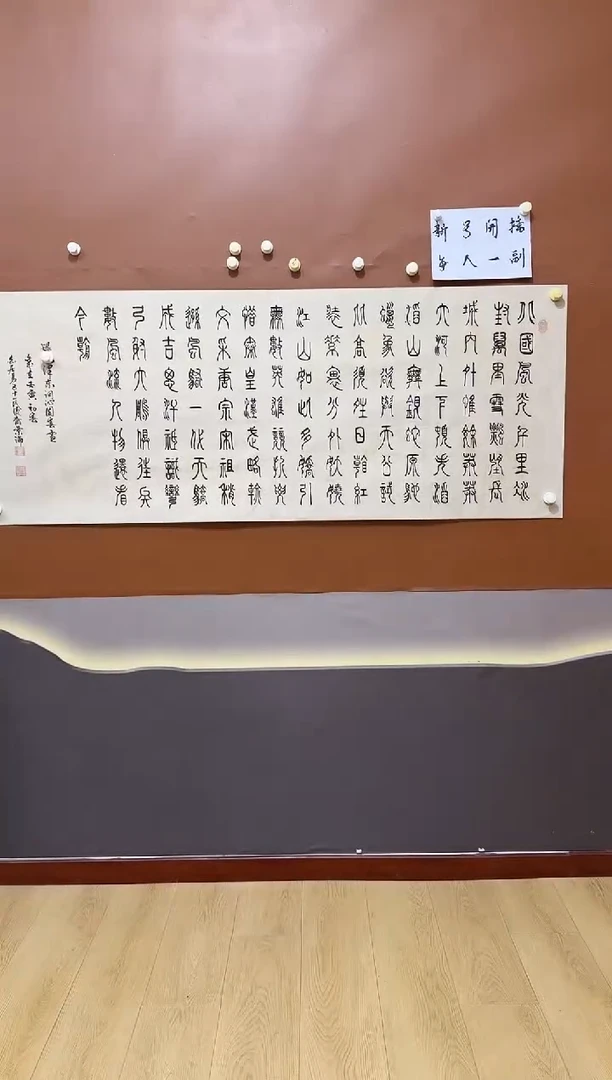 副
開一
新年
北國風光千里冰
封萬里雪飄望長
城內外惟餘莽莽
大河上下頓失滔
滔山舞銀蛇原馳
蠟象欲與天公試
比高須晴日看紅
裝素裹分外妖嬈
江山如此多嬌引
無數英雄競折腰
惜秦皇漢武略輸
文采唐宗宋祖稍
遜風騷一代天驕
成吉思汗祗識彎
弓射大鵰俱往矣
數風流人物還看
今朝
澤東詞沁園春雪
歲在壬寅初冬